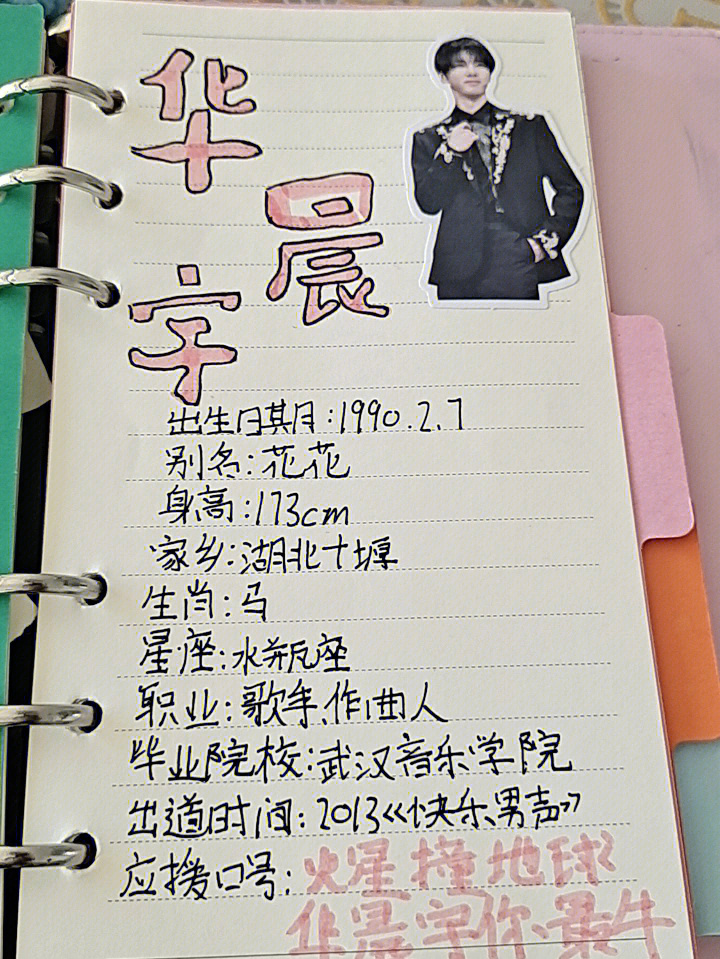 华
晨
宇
出生日期:1990.2.7
别名:花花
身高:173cm
家乡:湖北十堰
生肖:马
星座:水瓶座
职业:歌手、作曲人
毕业院校:武汉音乐学院
出道时间:2013《快乐男声》
应援口号:火星撞地球
华晨宇你最牛